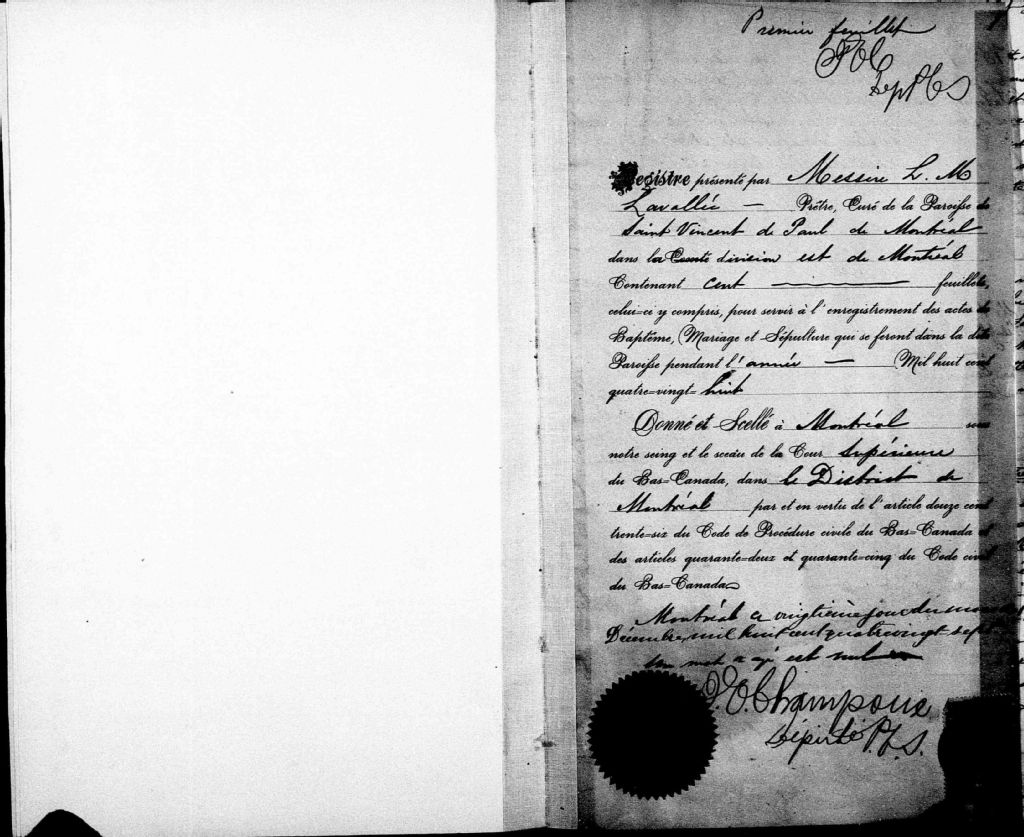 Premier feuillet
POC
Dep P C S
Registre présenté par Messire L. M
Lavallée — Prêtre, Curé de la Paroisse de
Saint Vincent de Paul de Montréal
dans la Comté division est de Montréal
Contenant cent feuillets,
celui-ci y compris, pour servir à l'enregistrement des actes de
Baptême, Mariage et Sépulture qui se feront dans la dite
Paroisse pendant l'année — Mil huit cent
quatre-vingt-huit
Donné et Scellé à Montréal sous
notre seing et le sceau de la Cour Supérieure
du Bas-Canada, dans le District de
Montréal par et en vertu de l'article douze cent
trente-six du Code de Procédure civile du Bas-Canada et
des articles quarante-deux et quarante-cinq du Code civil
du Bas-Canada
Montréal ce vingtième jour du mois de
Décembre, mil huit cent quatre vingt-sept
un mot est nul
P.O. Champoux
Député P.C.S.